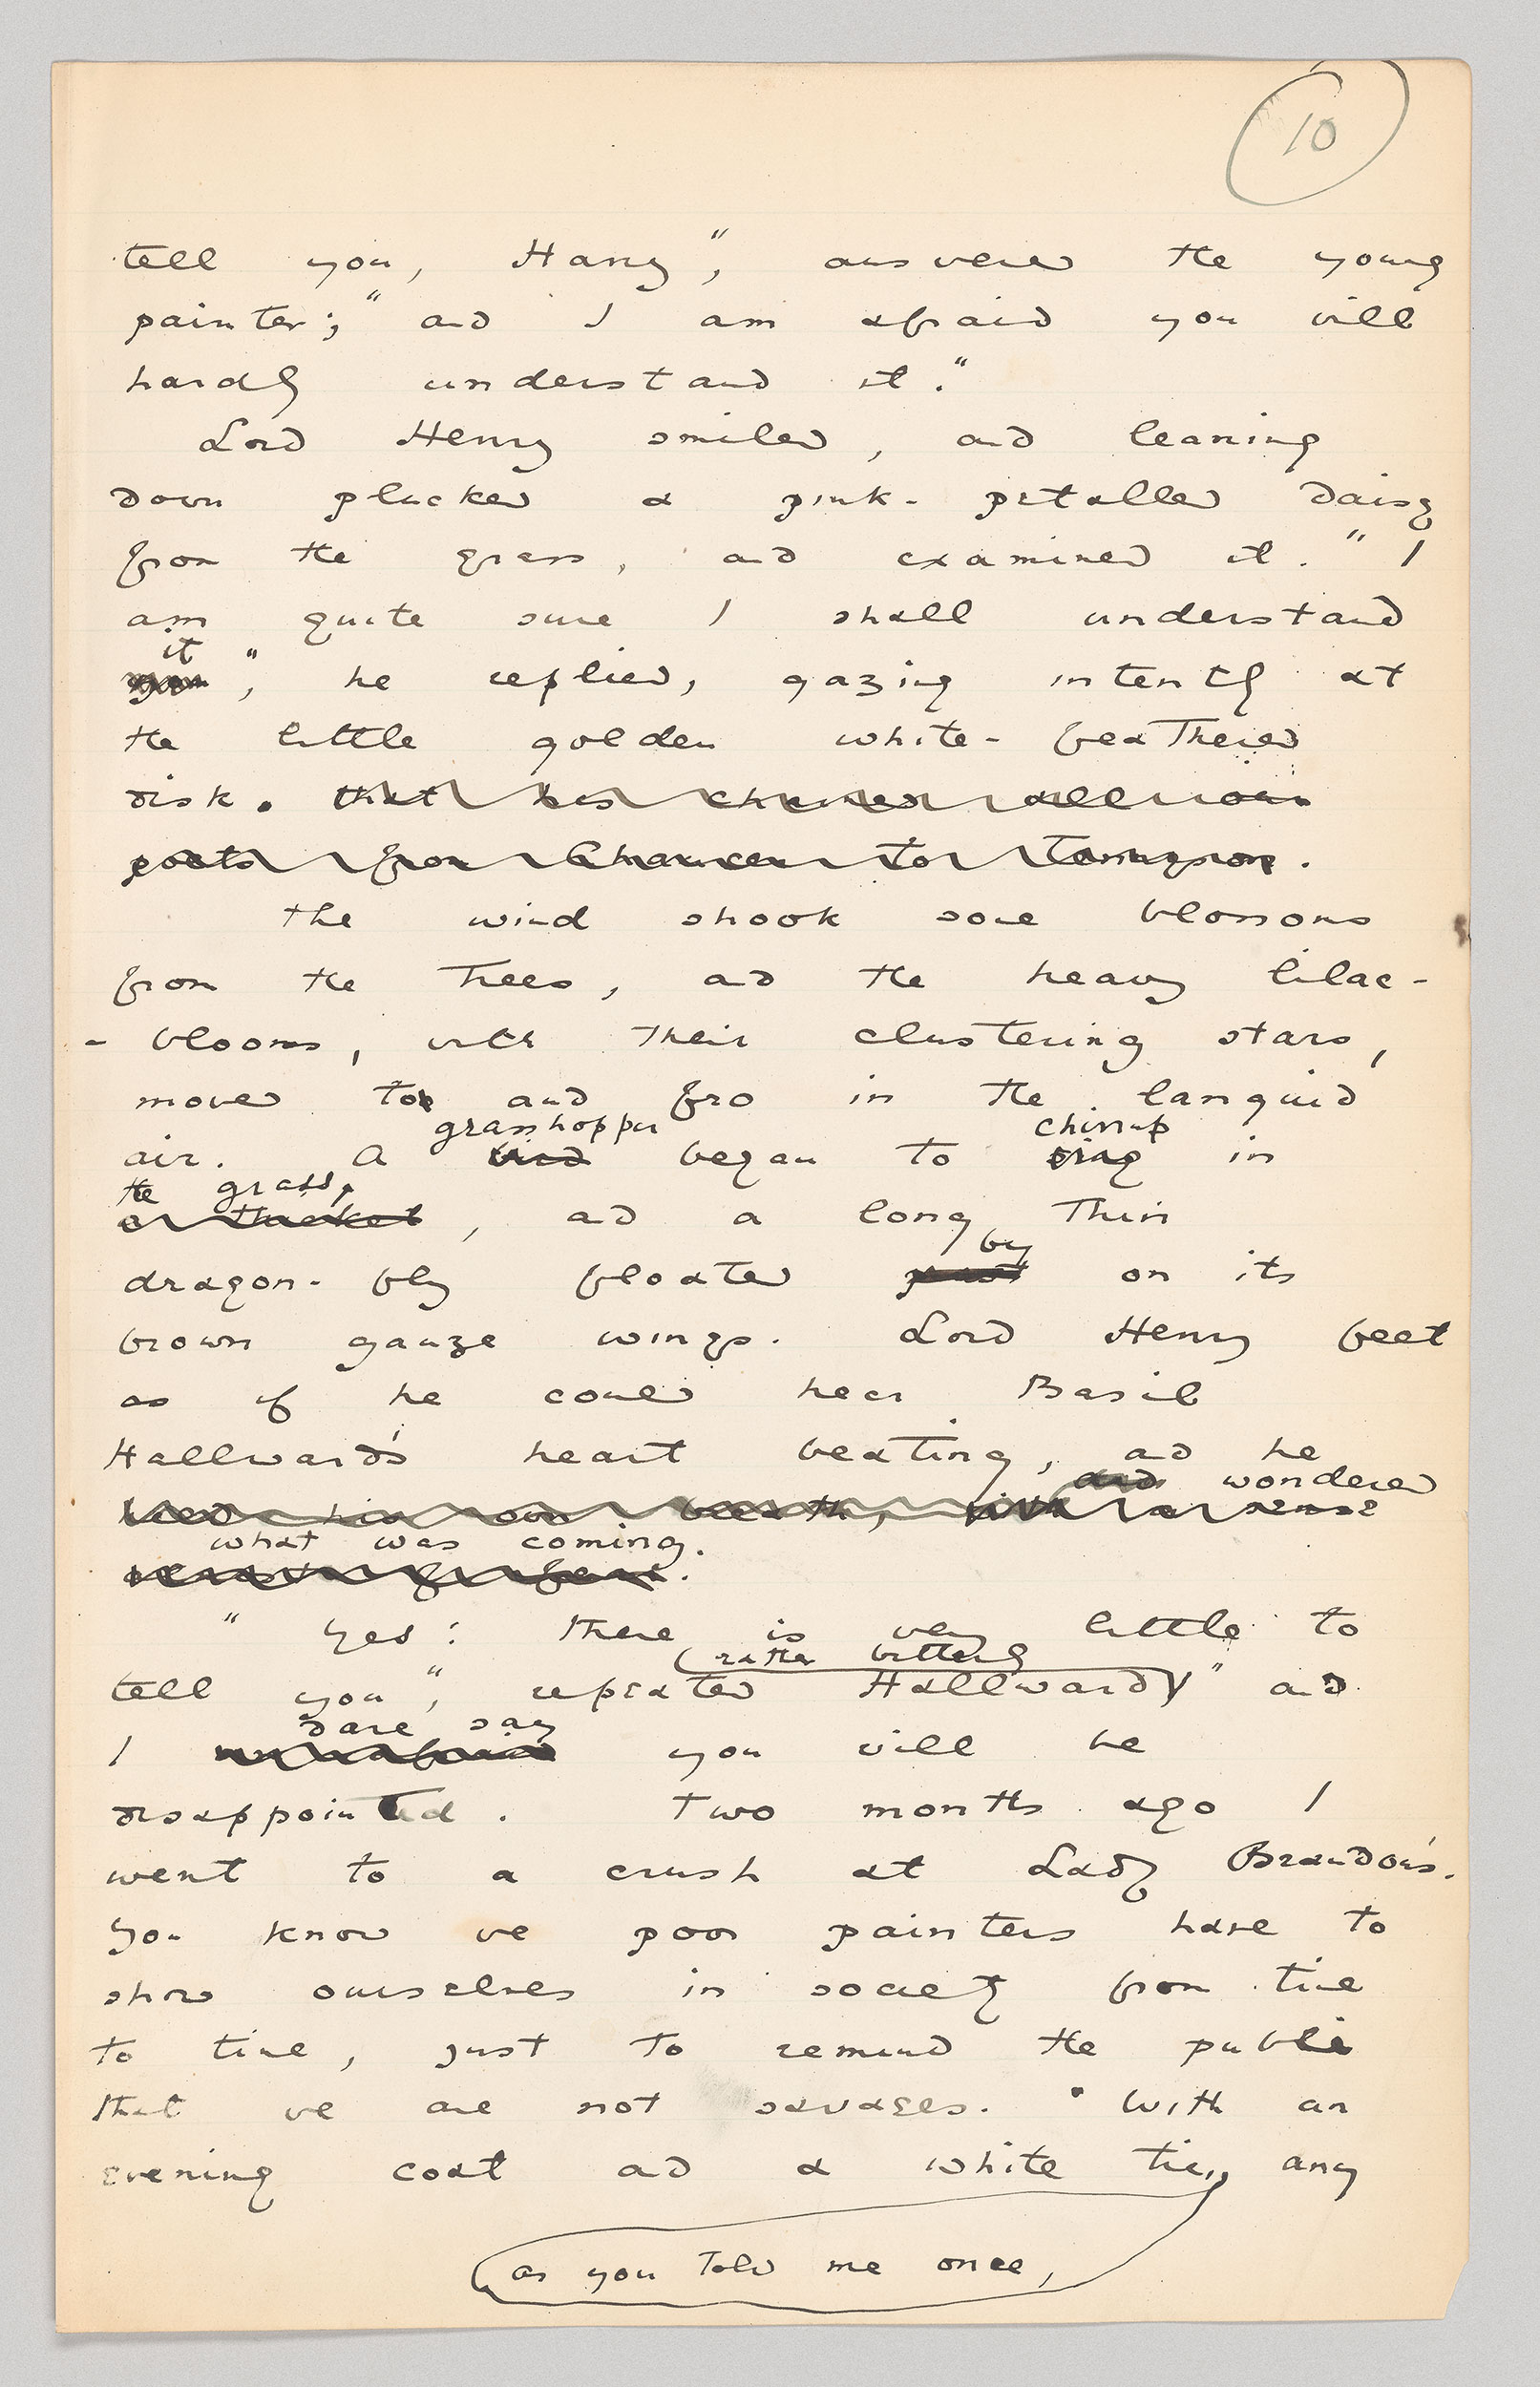 10
tell you, Harry", answered the young
painter; "and I am afraid you will
hardly understand it."
Lord Henry smiled, and leaning
down plucked a pink-petalled daisy
from the grass, and examined it. "I
am quite sure I shall understand
it
you", he replied, gazing intently at
the little golden white-feathered
disk. that has charmed all our
poets from Chaucer to Tennyson.
The wind shook some blossoms
from the trees, and the heavy lilac-
-blooms, with their clustering stars,
moved to and fro in the languid
grasshopper chirrup
air. A bird began to sing in
the grass,
a thicket, and a long thin
by
dragon-fly floated past on its
brown gauze wings. Lord Henry felt
as if he could hear Basil
Hallward's heart beating, and he
and wondered
his own breath, with a sense
what was coming.
of fear.
"Yes: there is very little to
(rather bitterly
tell you", repeated Hallward, "and
dare say
I am afraid you will be
disappointed. Two months ago I
went to a crush at Lady Brandon's.
You know we poor painters have to
show ourselves in society from time
to time, just to remind the public
that we are not savages. With an
evening coat and a white tie, any
as you told me once,